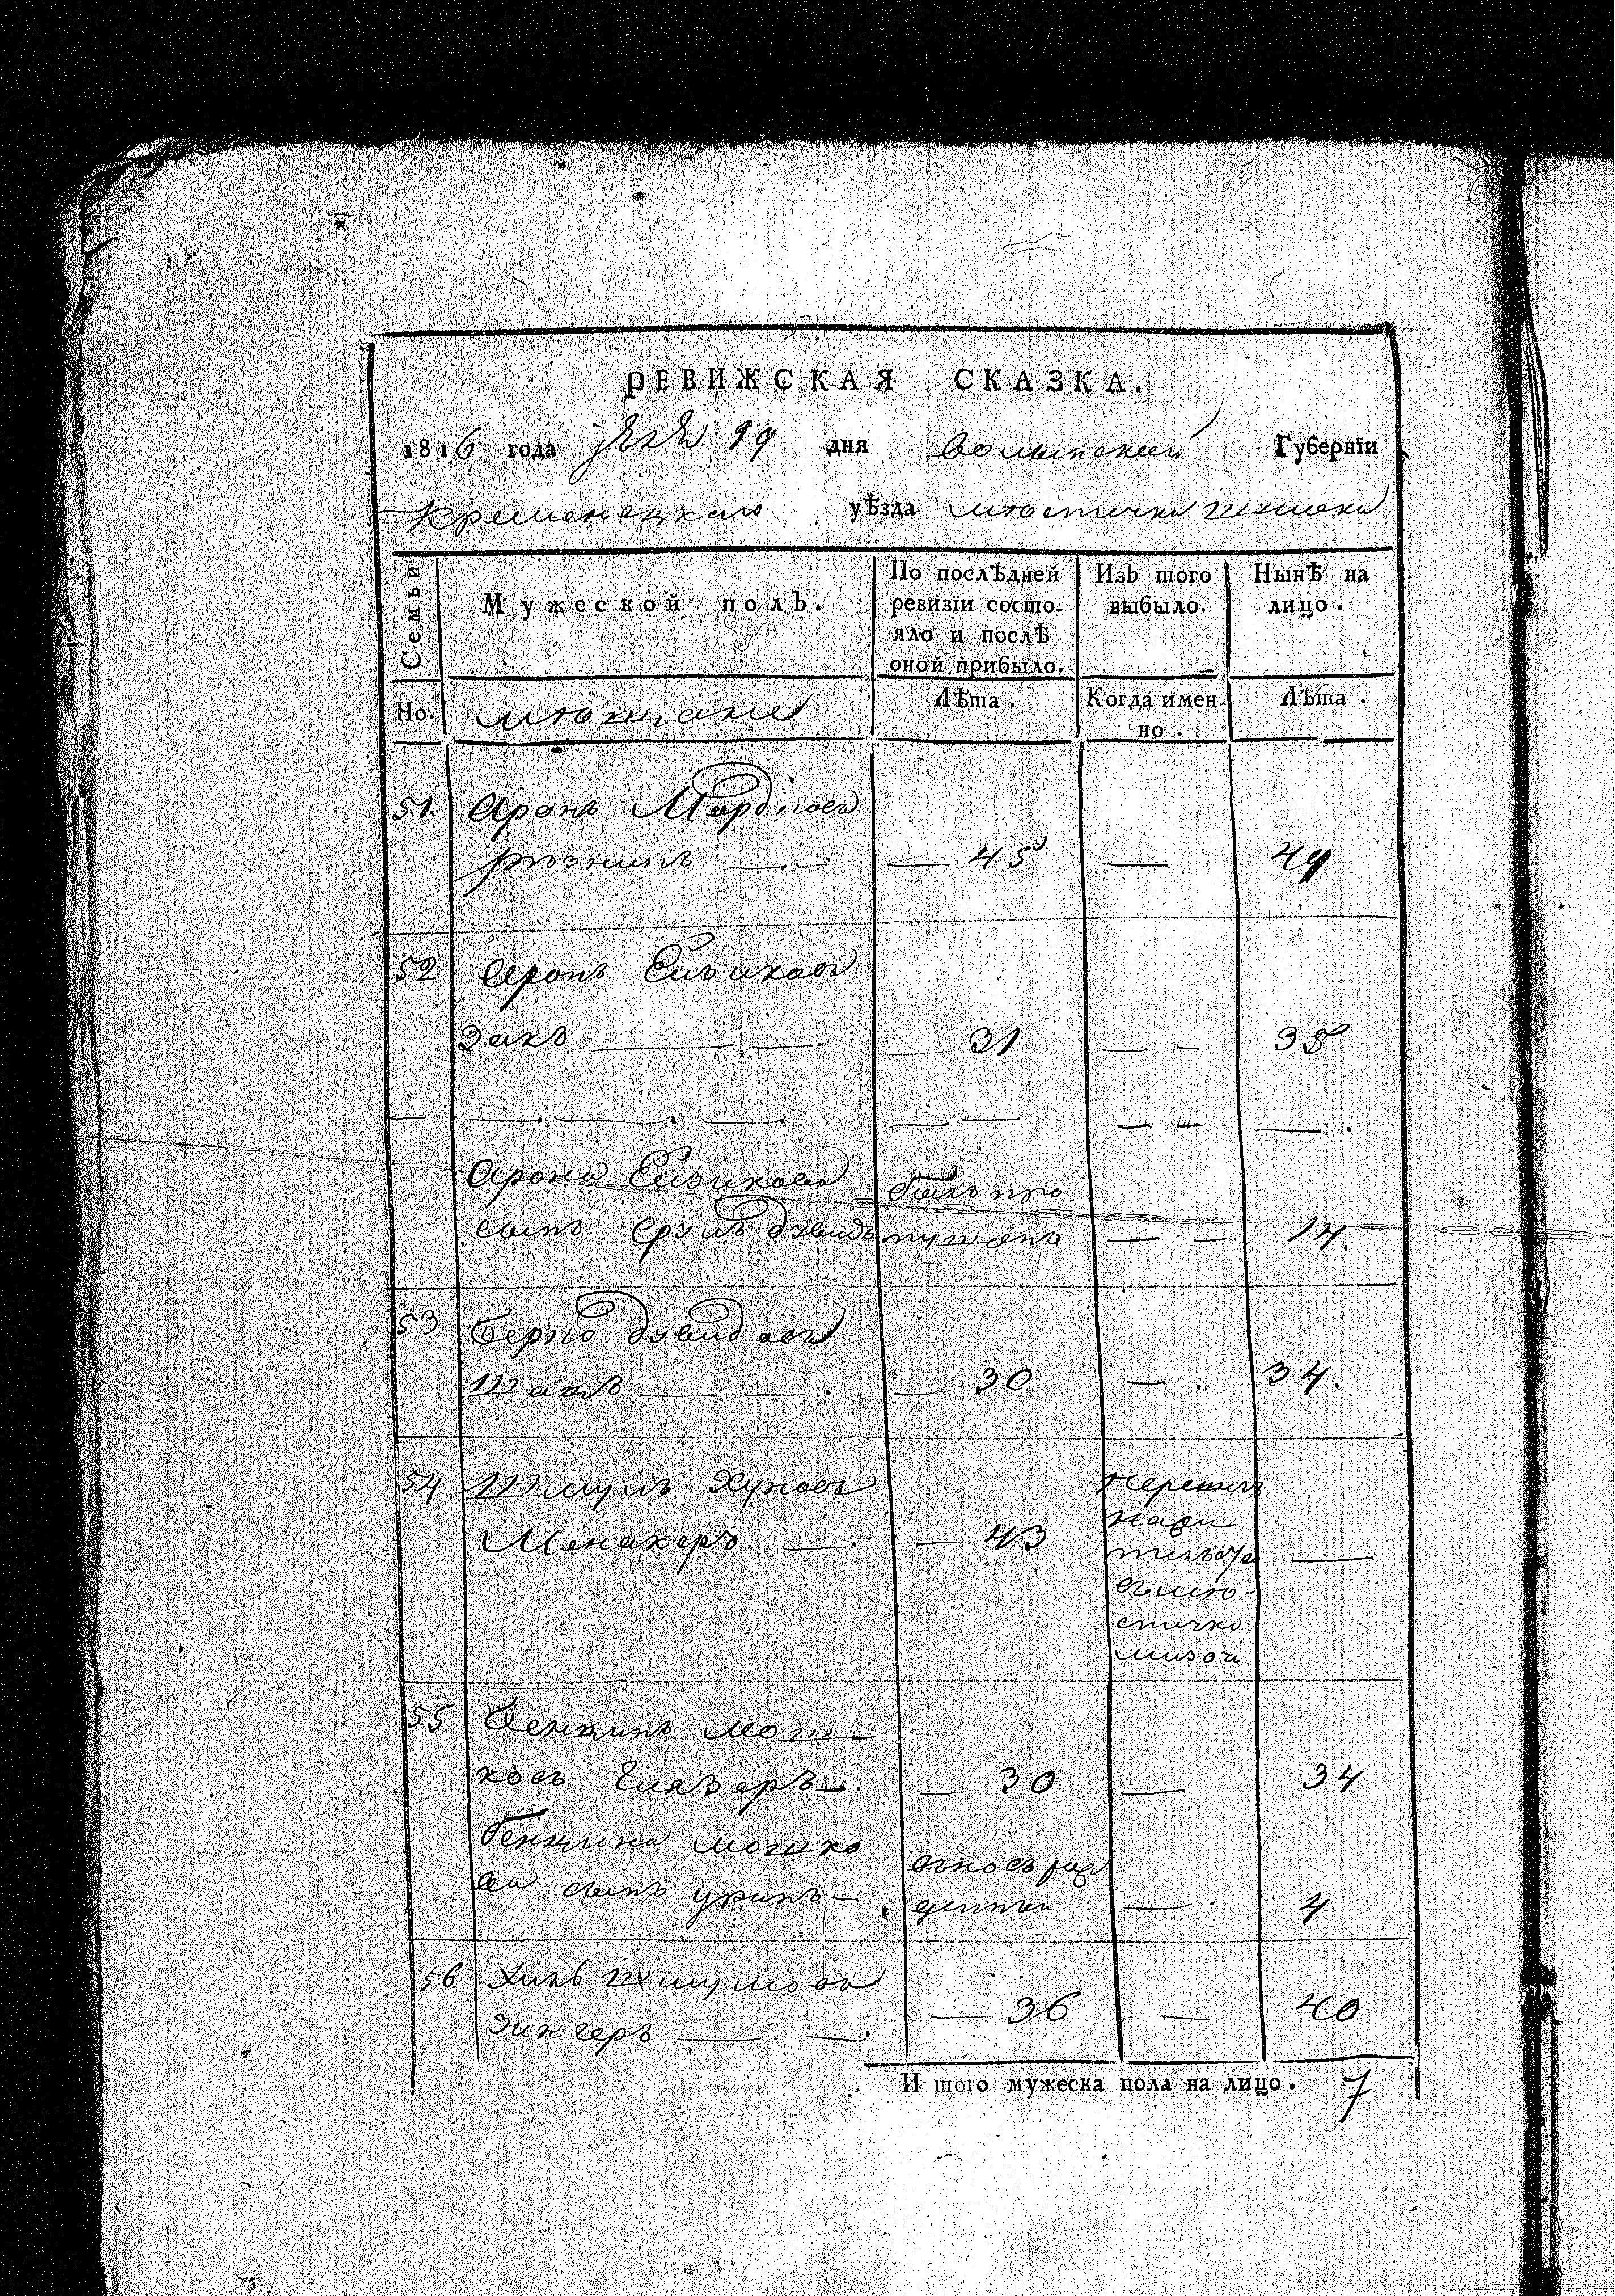 РЕВИЖСКАЯ СКАЗКА.
1816 года 19 дня Волынской Губернїи
Кременецкаго уѣзда мѣстечка
Семьи
Мужеской полъ.
По послѣдней ревизїи состо-
яло и послѣ
оной прибыло.
Изъ того
выбыло.
Нынѣ на
лицо.
Но.
мѣщане
Лѣта.
Когда имен-
но.
Лѣта.
51. Аронъ Мордковъ
— 45 — 49
52 Аронъ Ейзиковъ
Закъ — 31 — 35
Арона Ейзикова былъ про
сынъ Сруль Дувидъ пущенъ — 14.
53 Берко Дувидовъ
— 30 — 34.
54 Шмуль Хуновъ
Менакеръ — 43 —
въ мѣ-
стечко
Мизочь
55 Бенцинъ Мош-
ковъ Гиязеръ — 30 — 34
Бенцина Мошко
ва сынъ — 4
вновь рож
денный
56 Шмулевъ
Зингеръ — 36 — 40
И того мужеска пола на лицо. 7